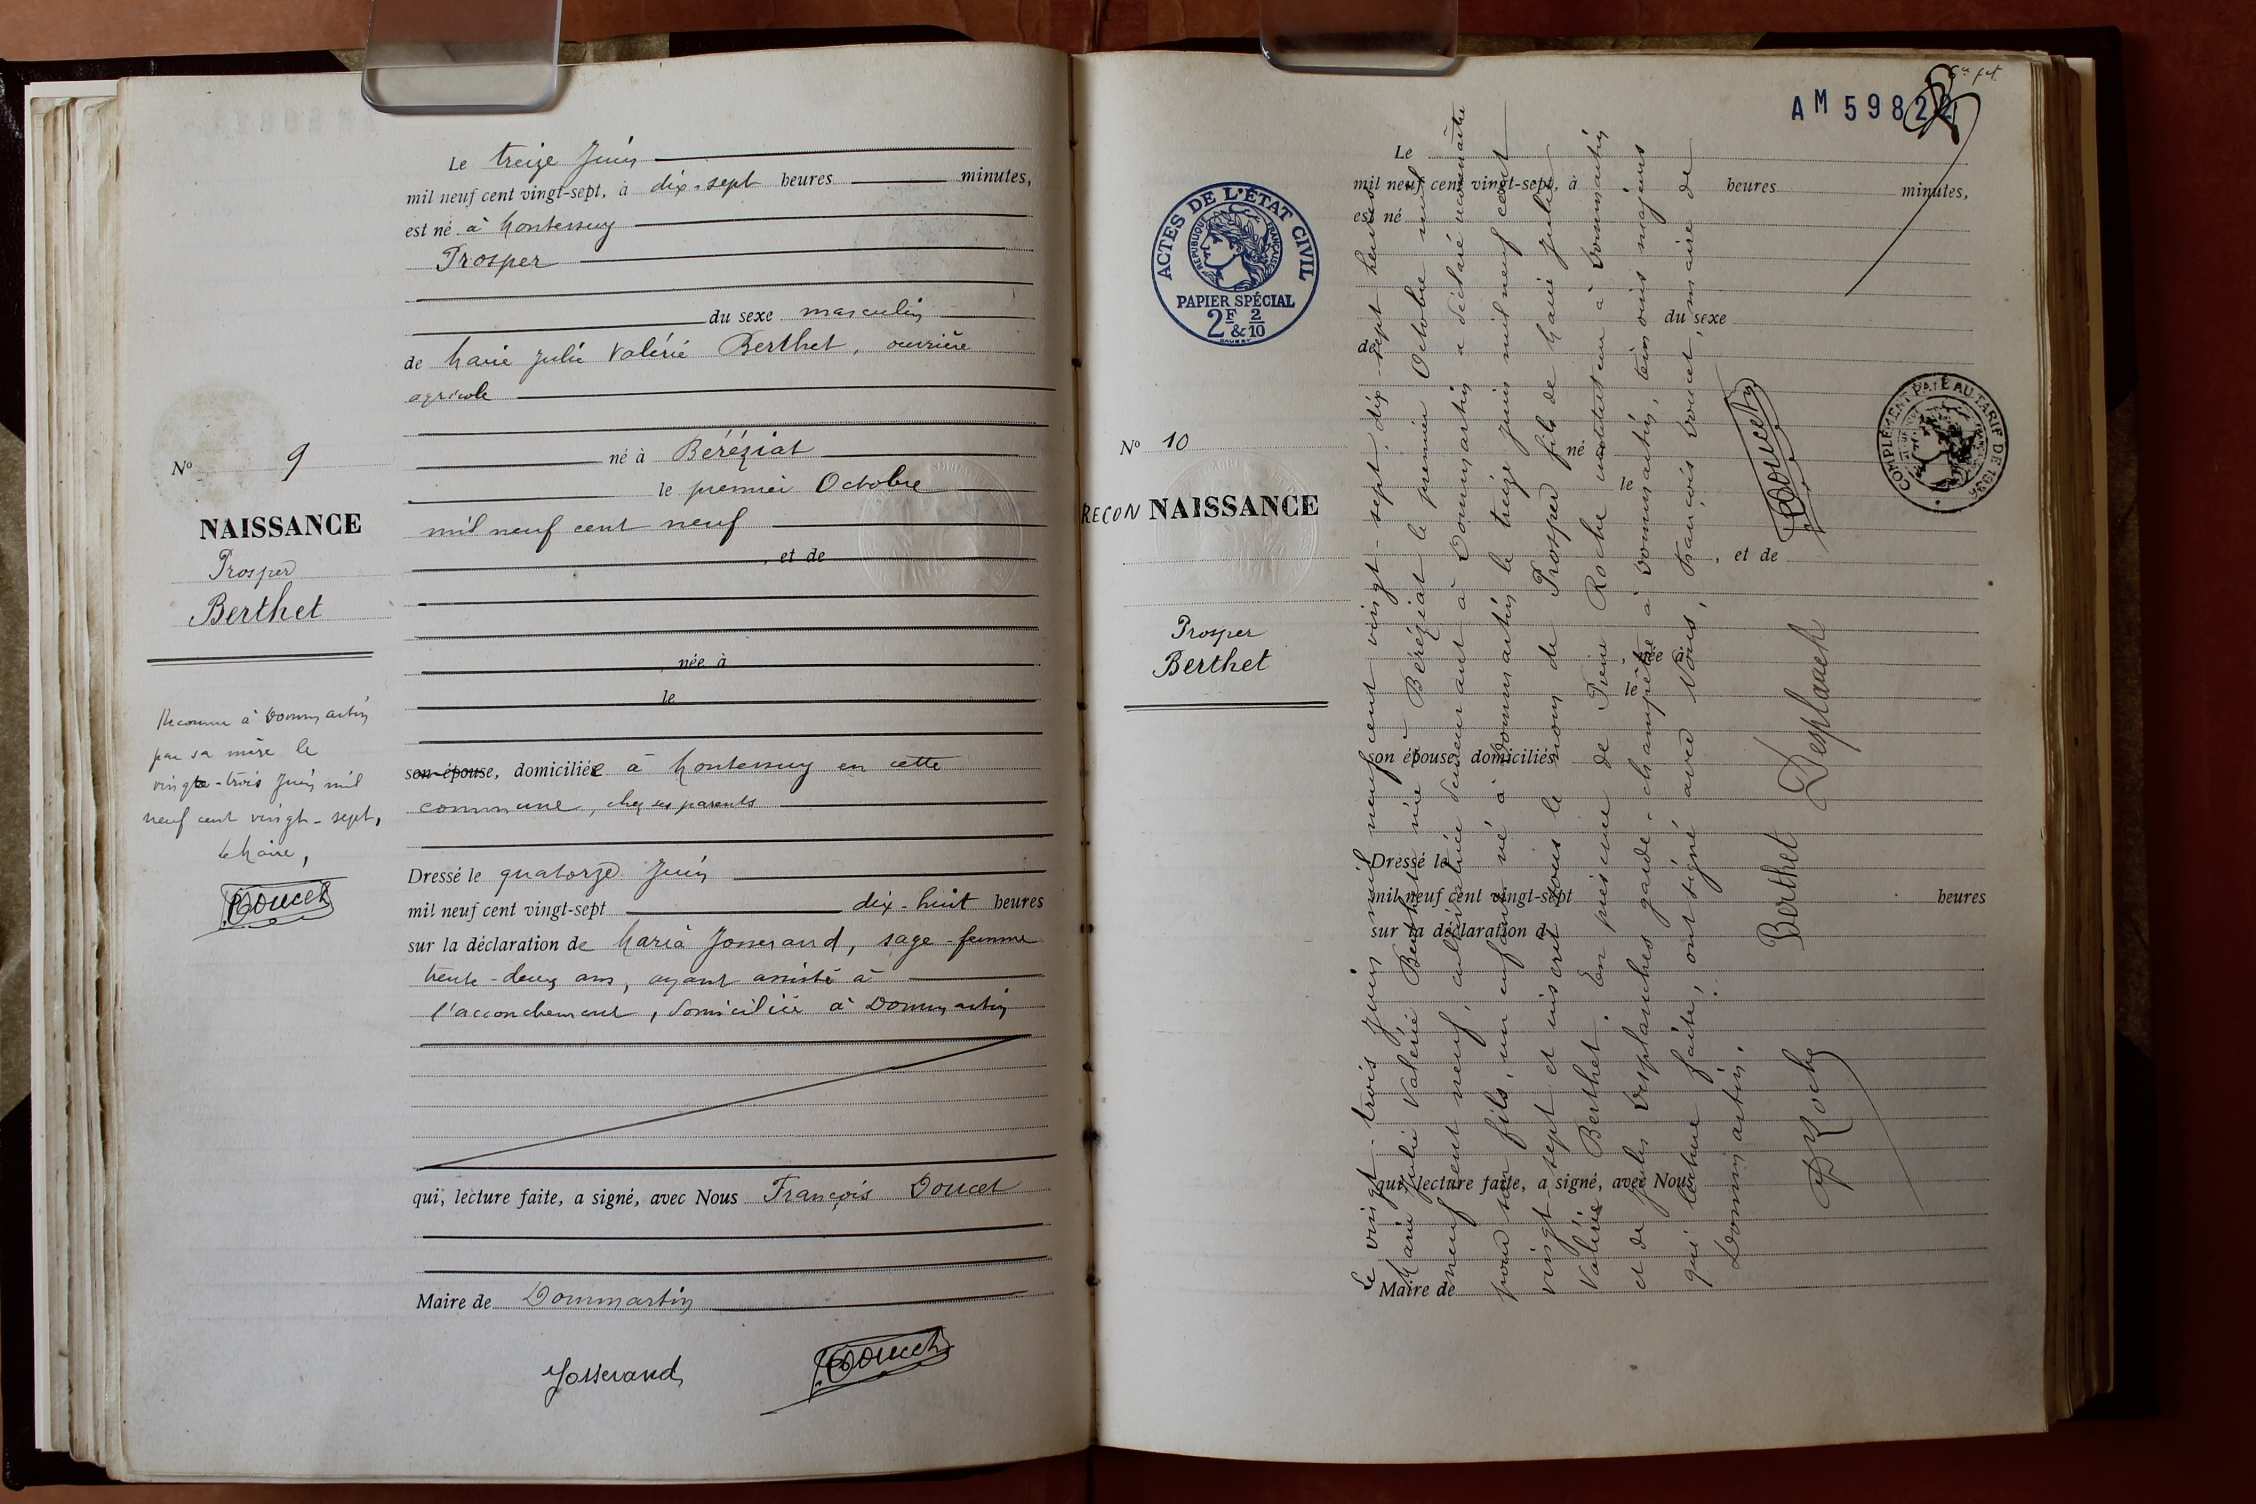 Le treize Juin
mil neuf cent vingt-sept, à dix-sept heures minutes,
est né à Montessuy
Prosper
du sexe masculin
de Marie Julie Valérie Berthet, ouvrière
agricole
né à Béréziat
le premier Octobre
mil neuf cent neuf
, et de
, née à
le
son épouse, domiciliée à Montessuy en cette
commune, chez ses parents
Dressé le quatorze Juin
mil neuf cent vingt-sept dix-huit heures
sur la déclaration de Maria Josserand, sage-femme
trente-deux ans, ayant assisté à
l'accouchement, domiciliée à Dommartin
qui, lecture faite, a signé, avec Nous François Doucet
Maire de Dommartin
Josserand
Doucet
No 9
NAISSANCE
Prosper
Berthet
Reconnu à Dommartin
par sa mère le
vingt-trois Juin mil
neuf cent vingt-sept,
Le Maire,
Doucet
AM 5982
ACTES DE L'ÉTAT CIVIL
RÉPUBLIQUE FRANÇAISE
PAPIER SPÉCIAL
2F & 2/10
COMPLÉMENT PAYÉ AU TARIF DE 1926
No 10
RECONNAISSANCE
Prosper
Berthet
Le
mil neuf cent vingt-sept, à heures minutes,
est né
du sexe
de
né
le
et de
née à
le
son épouse, domiciliés
Dressé le
mil neuf cent vingt-sept heures
sur la déclaration d
qui, lecture faite, a signé, avec Nous
Maire de
Le vingt-trois Juin mil neuf cent vingt-sept, dix-sept heures
Marie Julie Valérie Berthet née à Béréziat le premier Octobre mil
neuf cent neuf, cultivatrice demeurant à Dommartin a déclaré reconnaître
pour son fils, un enfant né à Dommartin le treize juin mil neuf cent
vingt-sept et inscrit sous le nom de Prosper fils de Marie Julie
Valérie Berthet. En présence de Pierre Roche instituteur à Dommartin
et de Jules Desplanches garde-champêtre à Dommartin, témoins majeurs
qui lecture faite, ont signé avec Nous, François Doucet, maire de
Dommartin.
Roche
Berthet
Desplanch
Doucet